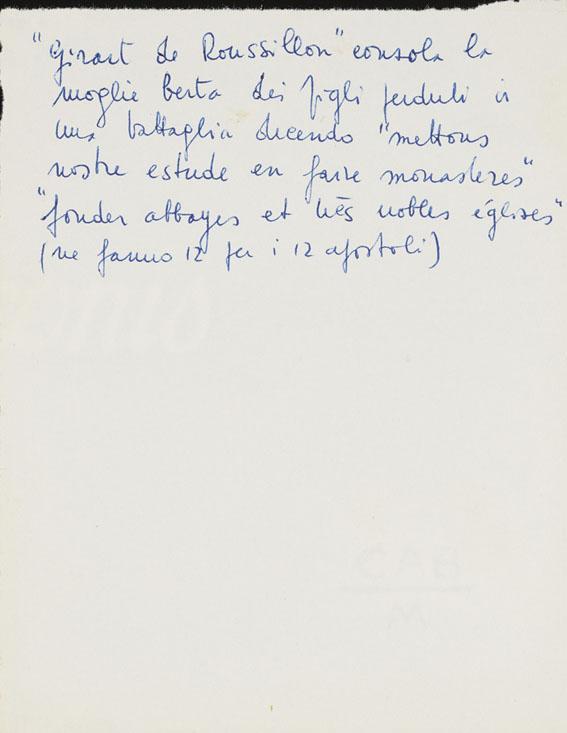 "Girart de Roussillon" consola la
moglie berta dei figli perduti in
una battaglia dicendo "mettons
nostre estude en faire monasteres"
"fonder abbayes et très nobles églises"
(ne fanno 12 per i 12 apostoli)